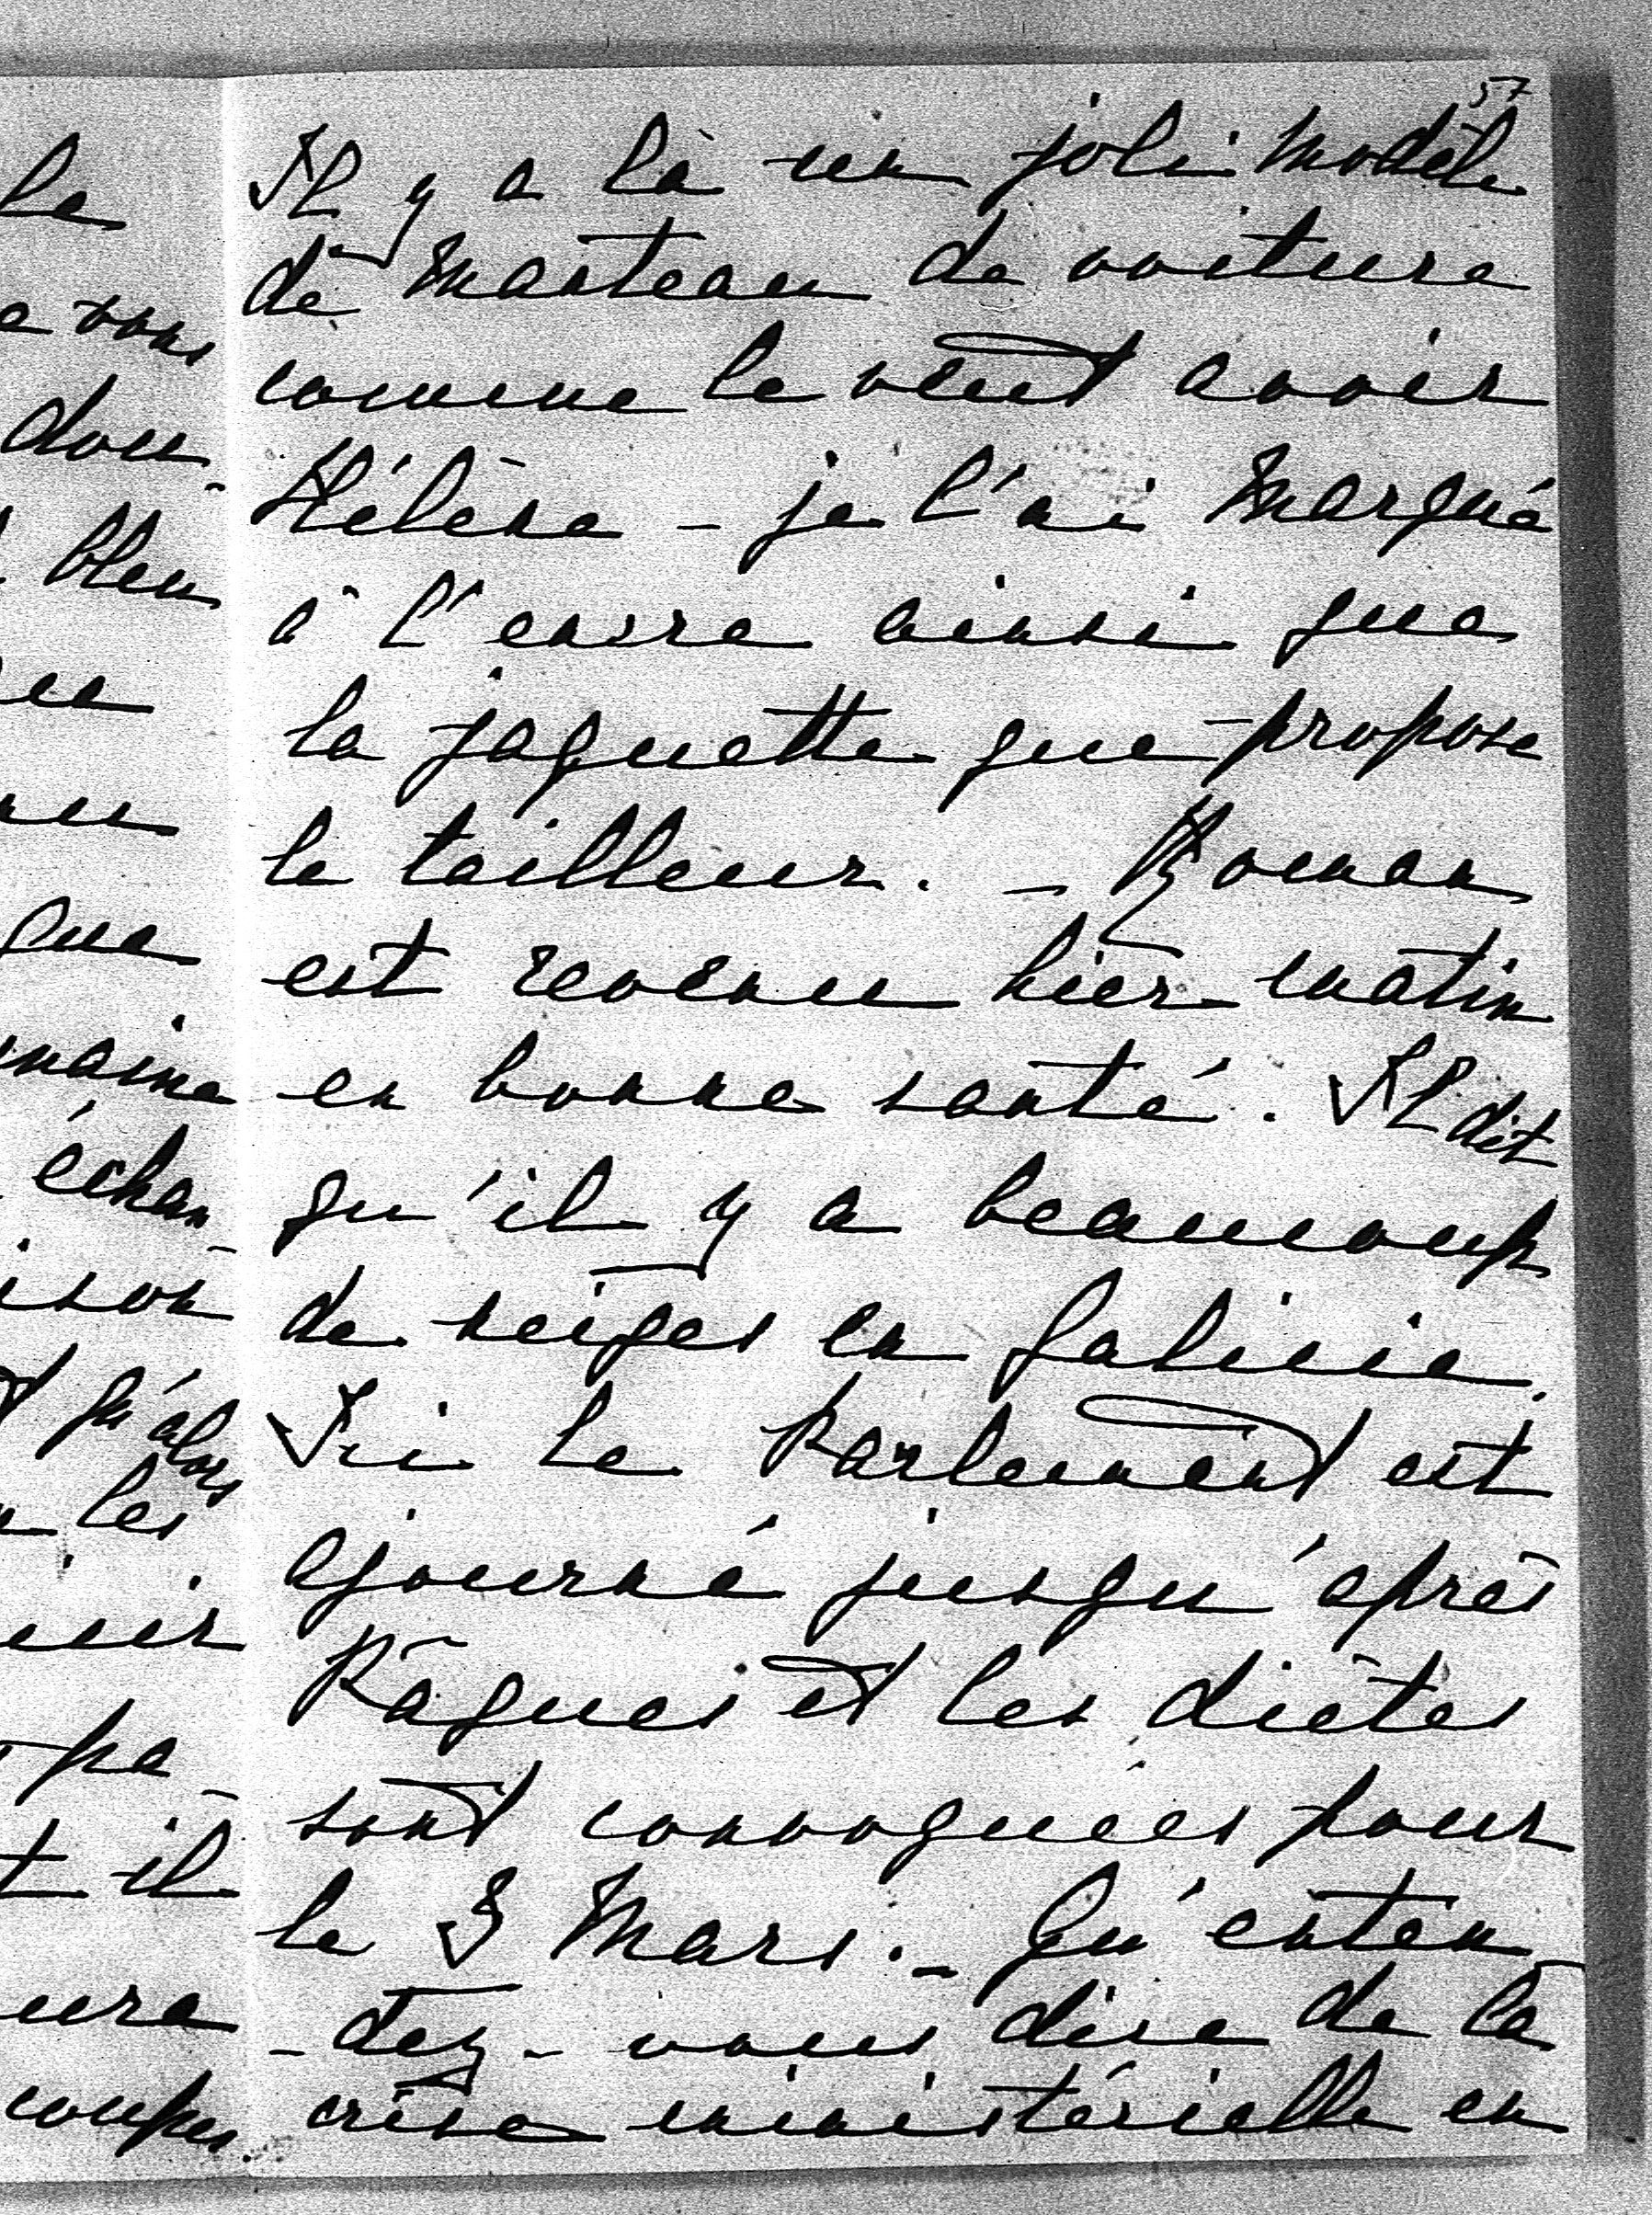 57
Il y a là un joli modèle
de manteau de voiture
comme le veut avoir
Hélène – je l'ai marqué
à l'encre ainsi que
la jaquette que propose
le tailleur. – Roman
est revenu hier matin
en bonne santé. Il dit
qu'il y a beaucoup
de neiges en Galicie.
Ici le Parlement est
ajourné jusqu'après
Pâques et les diètes
sont convoquées pour
le 3 Mars. – Qu'enten
-dez-vous dire de la
crise ministérielle en
le
vous
dou-
bleu
que
maine
échan-
ison
qu'alors
les
pa-
il
coupes